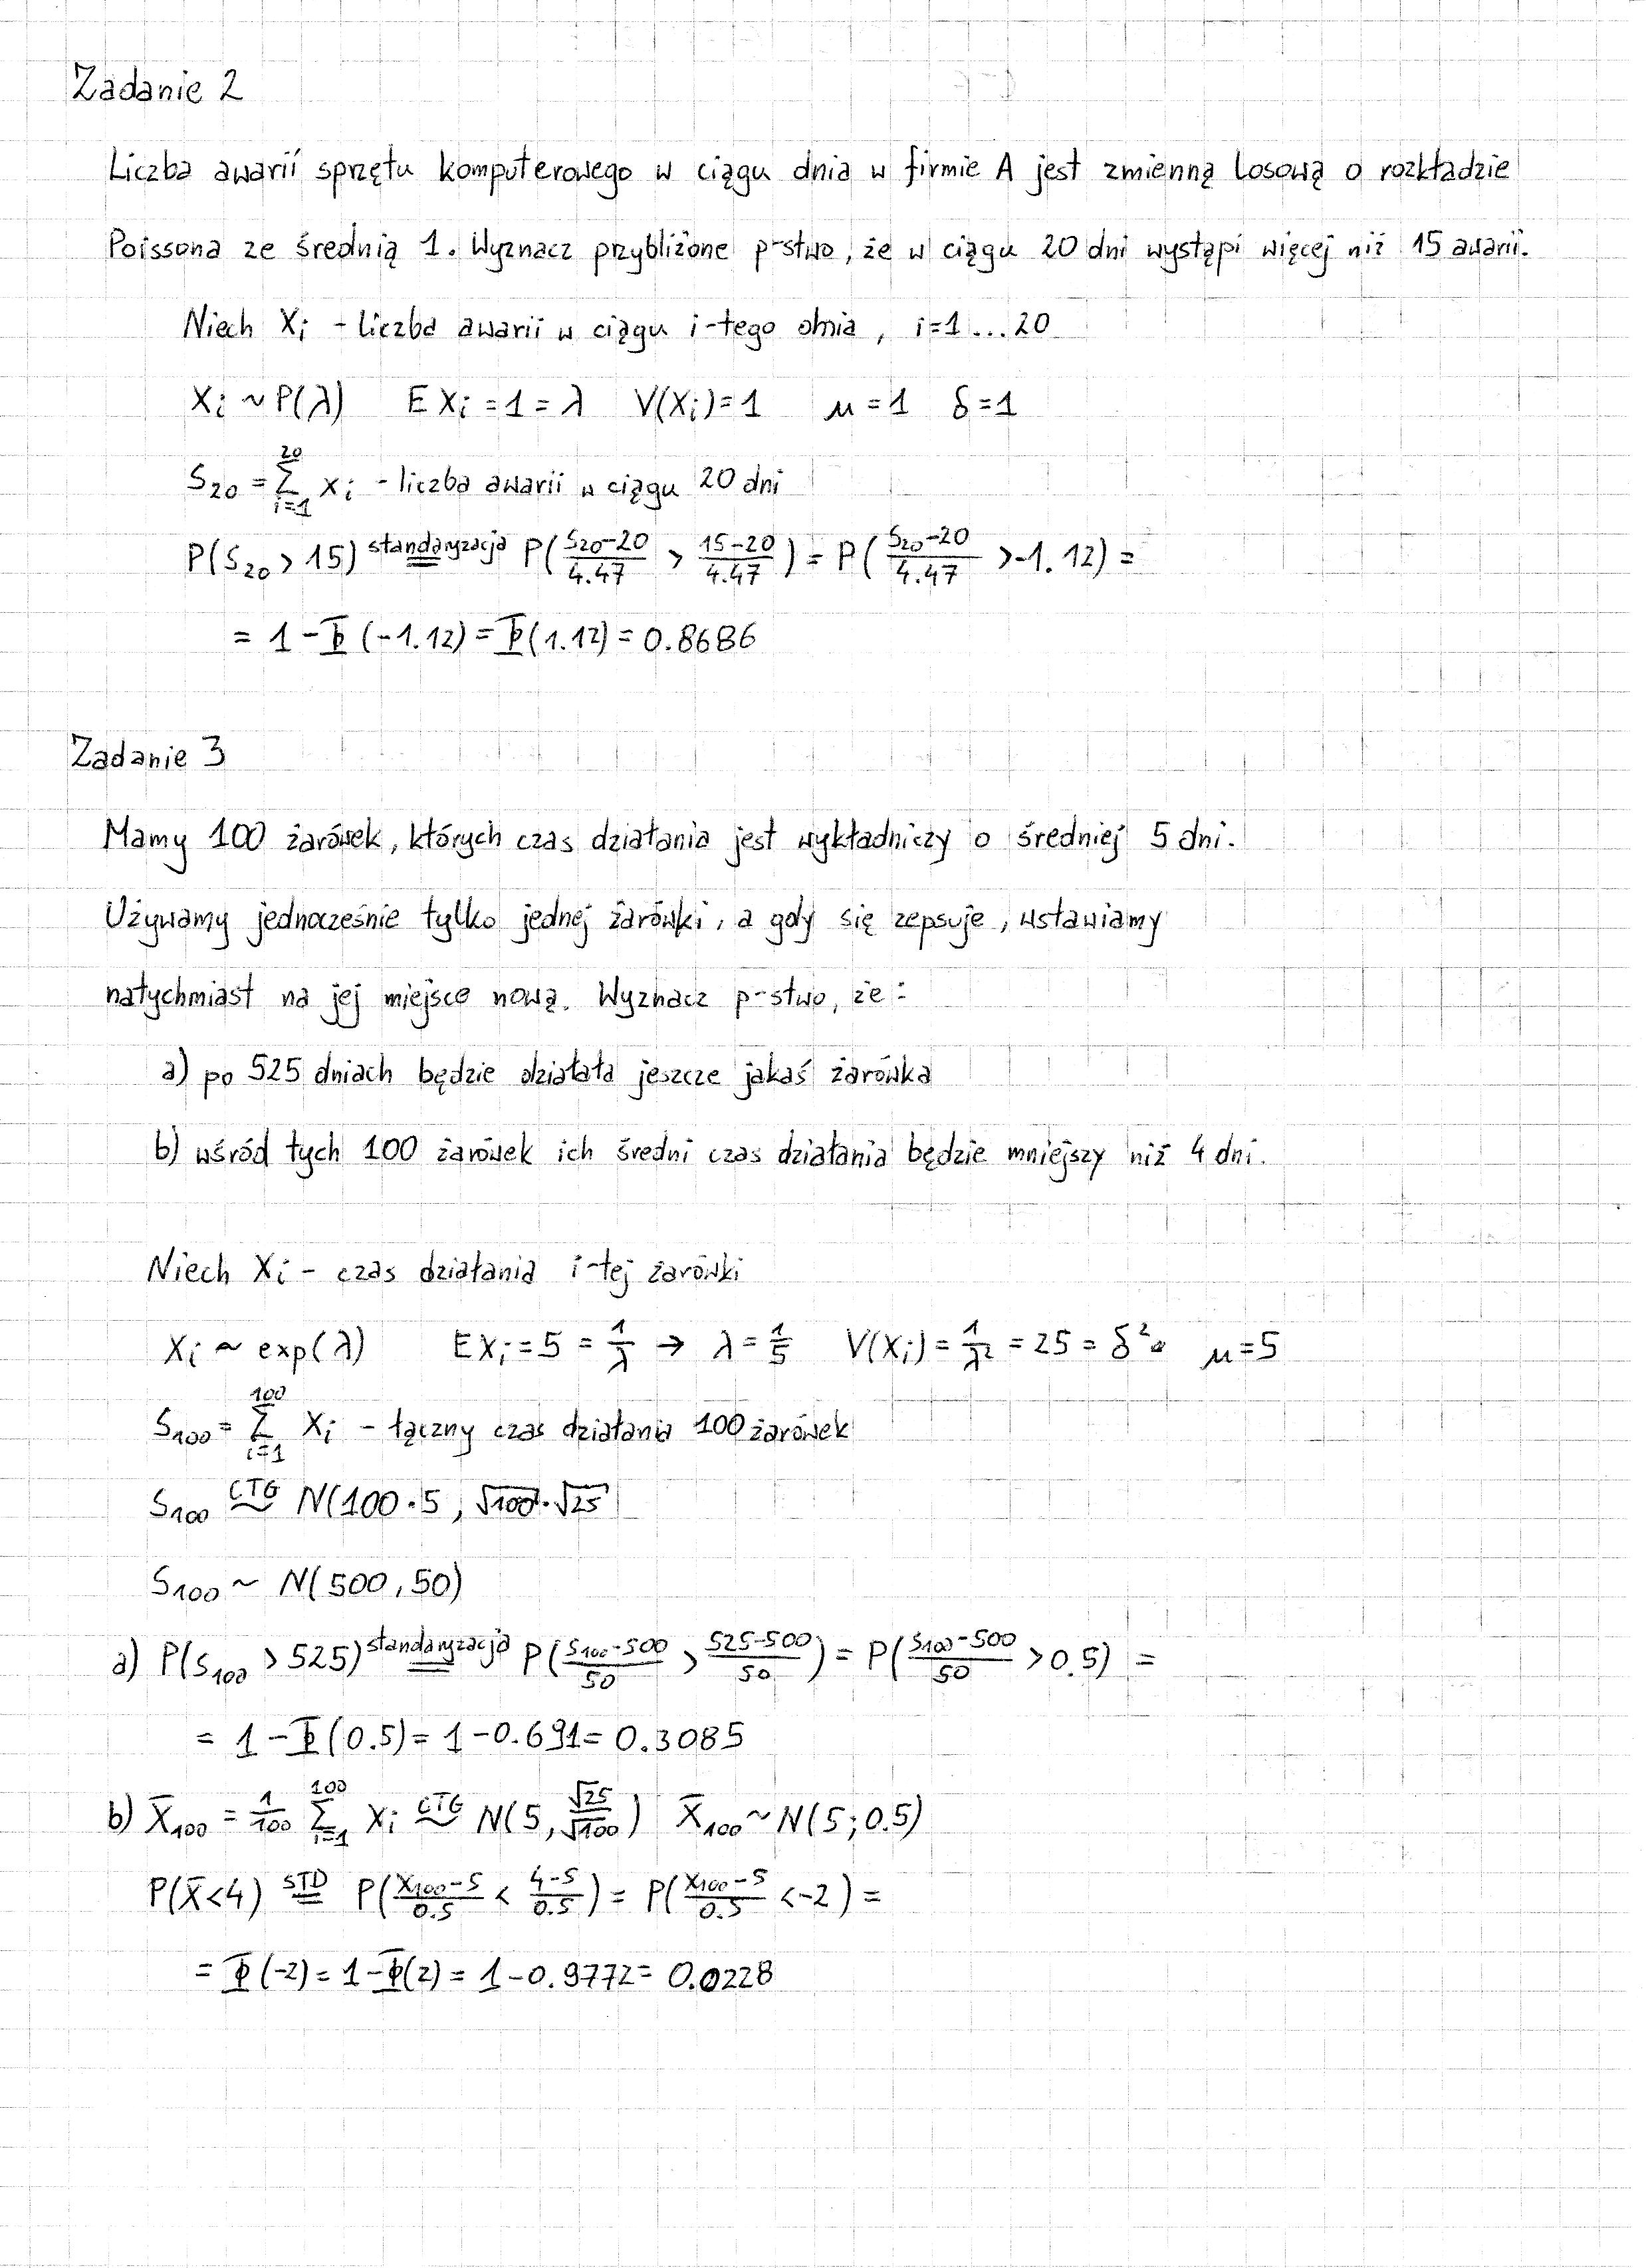 Zadanie 2
Liczba awarii sprzętu komputerowego w ciągu dnia w firmie A jest zmienną losową o rozkładzie
Poissona ze średnią 1. Wyznacz przybliżone p-stwo, że w ciągu 20 dni wystąpi więcej niż 15 awarii.
Niech Xi - liczba awarii w ciągu i-tego dnia, i=1...20
Xi ~ P(λ) EXi = 1 = λ V(Xi)=1 μ=1 δ=1
S20 = Σ_{i=1}^{20} Xi - liczba awarii w ciągu 20 dni
P(S20 > 15) standaryzacja = P((S20-20)/4.47 > (15-20)/4.47) = P((S20-20)/4.47 > -1.12) =
= 1 - Φ(-1.12) = Φ(1.12) = 0.8686
Zadanie 3
Mamy 100 żarówek, których czas działania jest wykładniczy o średniej 5 dni.
Używamy jednocześnie tylko jednej żarówki, a gdy się zepsuje, wstawiamy
natychmiast na jej miejsce nową. Wyznacz p-stwo, że:
a) po 525 dniach będzie działała jeszcze jakaś żarówka
b) wśród tych 100 żarówek ich średni czas działania będzie mniejszy niż 4 dni.
Niech Xi - czas działania i-tej żarówki
Xi ~ exp(λ) EXi = 5 = 1/λ → λ = 1/5 V(Xi) = 1/λ² = 25 = δ² μ=5
S100 = Σ_{i=1}^{100} Xi - łączny czas działania 100 żarówek
S100 CTG ~ N(100·5, √100·√25
S100 ~ N(500, 50)
a) P(S100 > 525) standaryzacja = P((S100-500)/50 > (525-500)/50) = P((S100-500)/50 > 0.5) =
= 1 - Φ(0.5) = 1 - 0.691 = 0.3085
b) X̄100 = 1/100 Σ_{i=1}^{100} Xi CTG ~ N(5, √25/√100) X̄100 ~ N(5; 0.5)
P(X̄<4) STD = P((X100-5)/0.5 < (4-5)/0.5) = P((X100-5)/0.5 < -2) =
= Φ(-2) = 1 - Φ(2) = 1 - 0.9772 = 0.0228